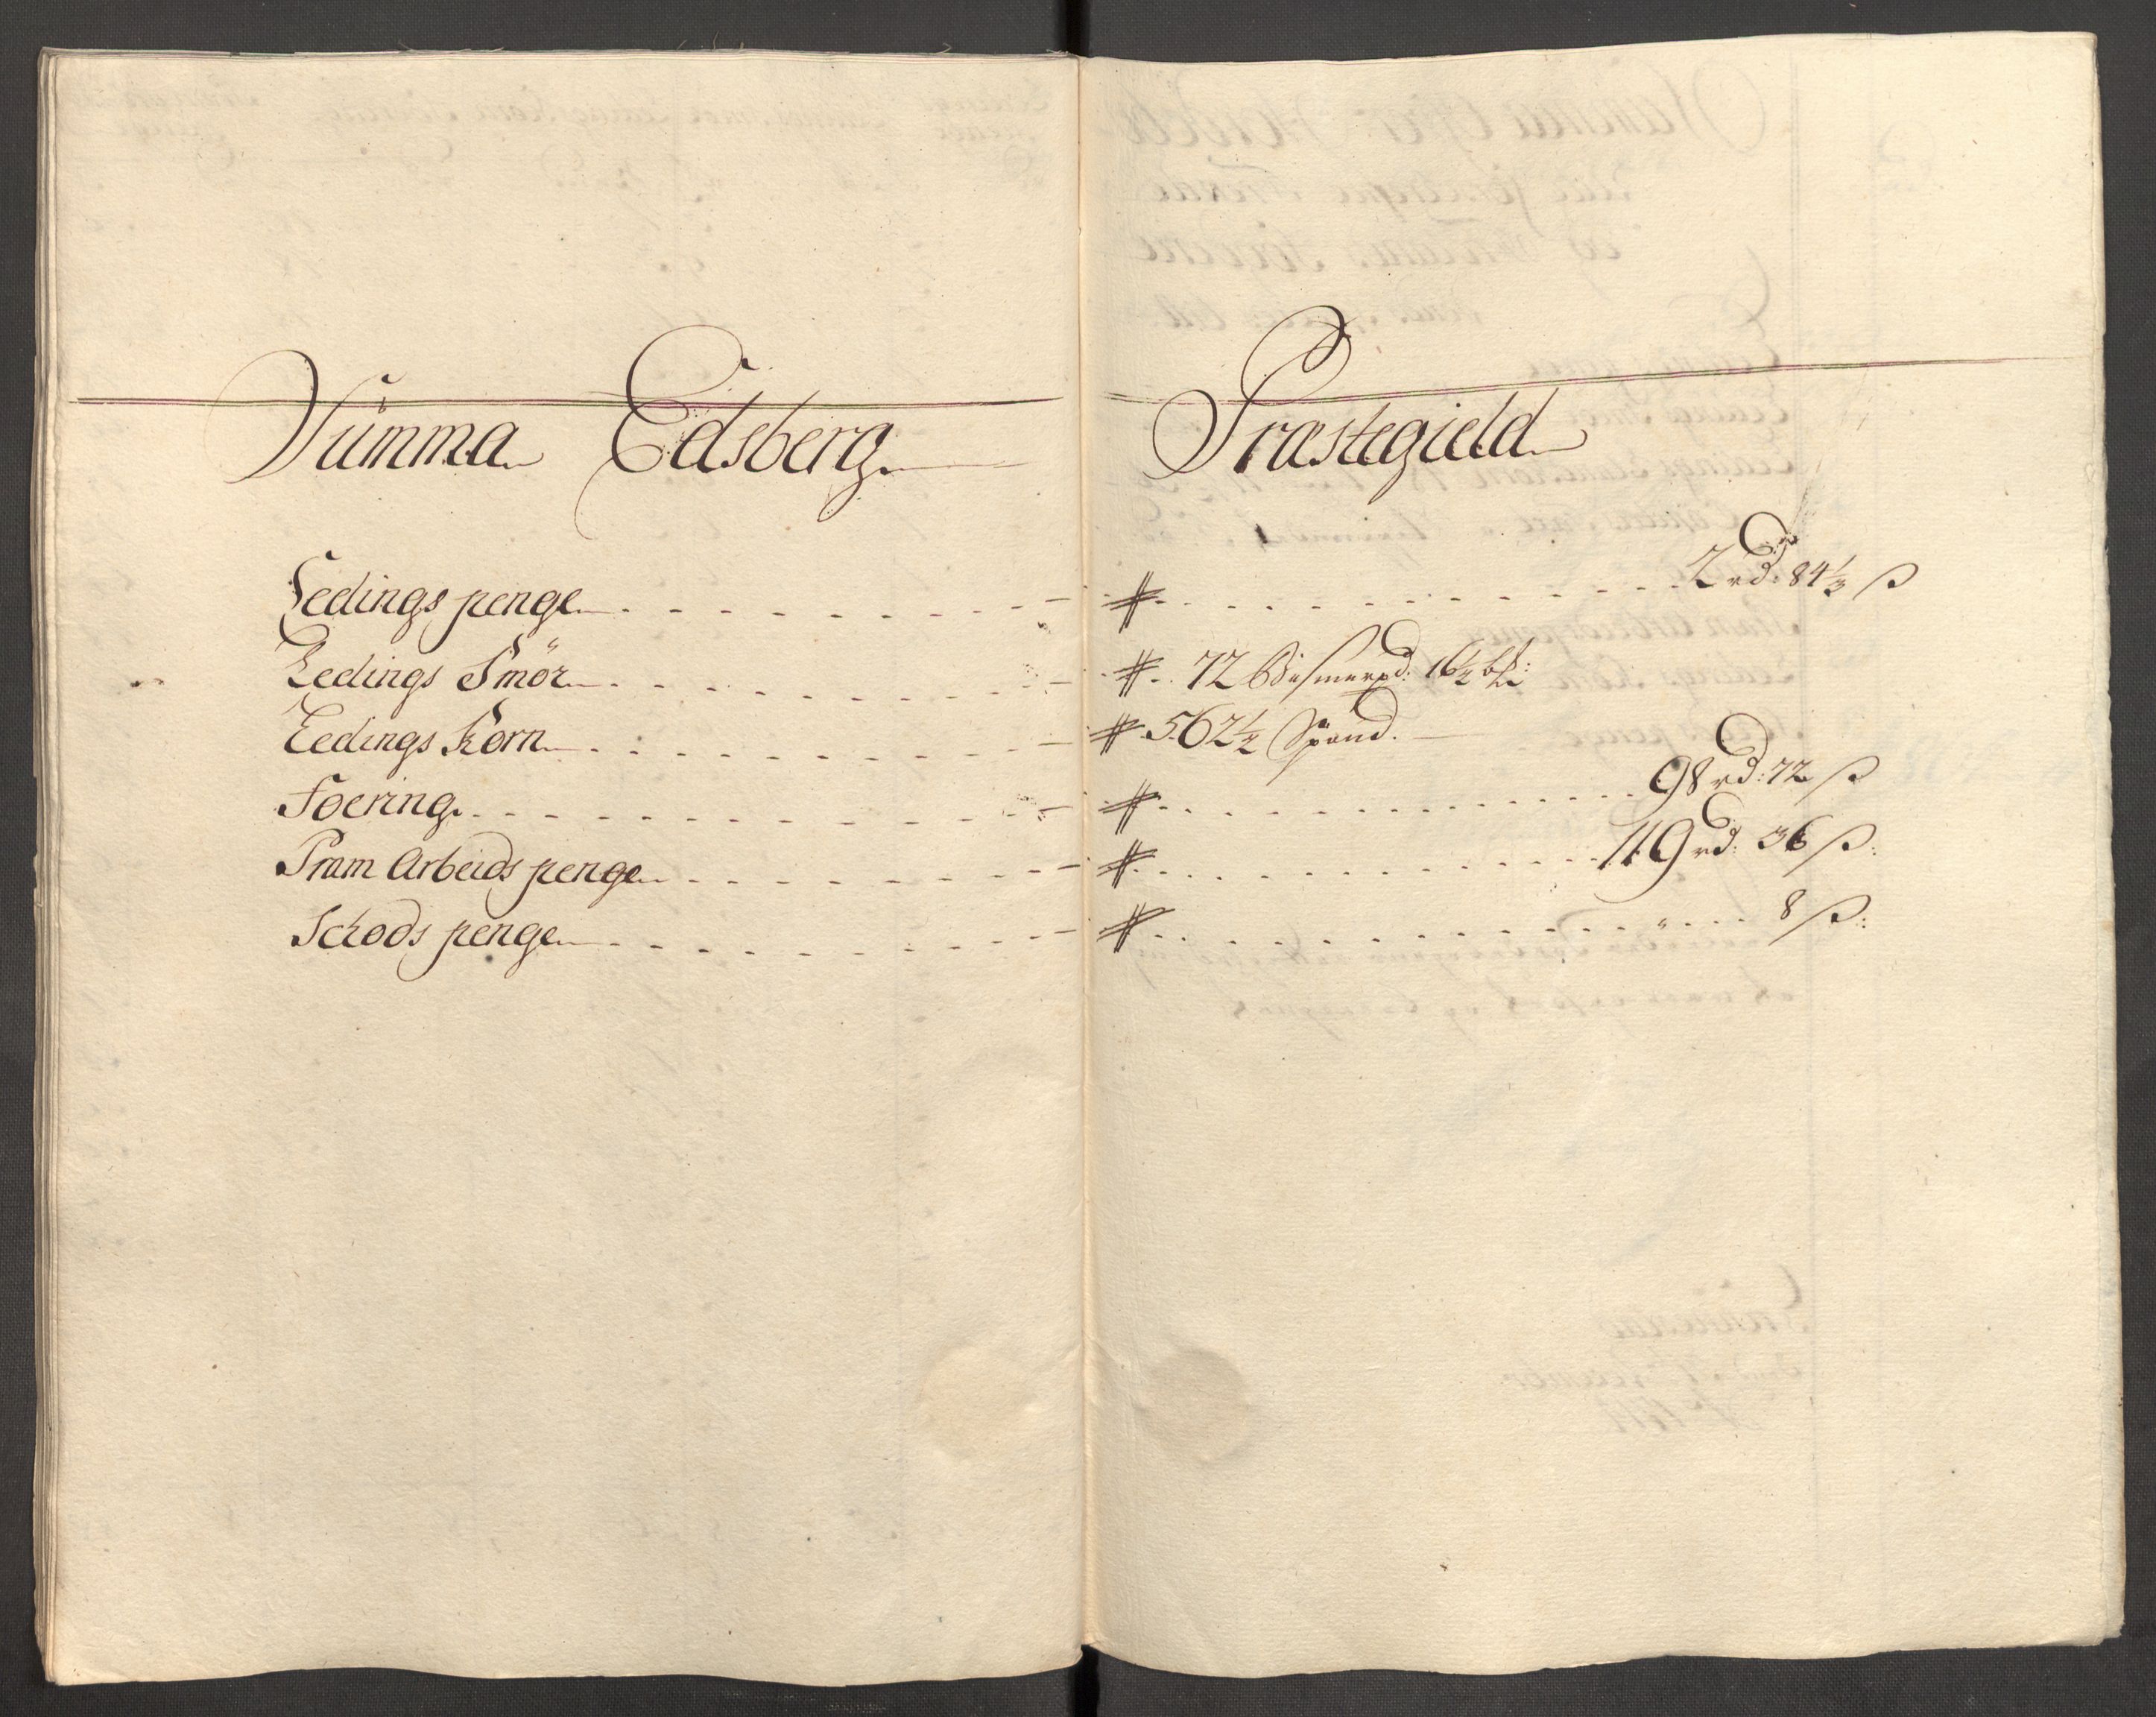 Summa Edsberg Præstegield
Ledings penge - - - - - - - - # - - - - - - - - 2 rd: 84 1/3 ß
Ledings Smör - - - - - - - - # - 72 Bismerpd: 16 1/2 ℔:
Ledings Korn - - - - - - - - # 562 1/2 Spand.
Foering - - - - - - - - # - - - - - - - - 98 rd: 72 ß
Pram Arbeids penge - - - - - - - - # - - - - - - - - 119 rd: 36 ß:
Schods penge - - - - - - - - # - - - - - - - - " - - 8 ß: